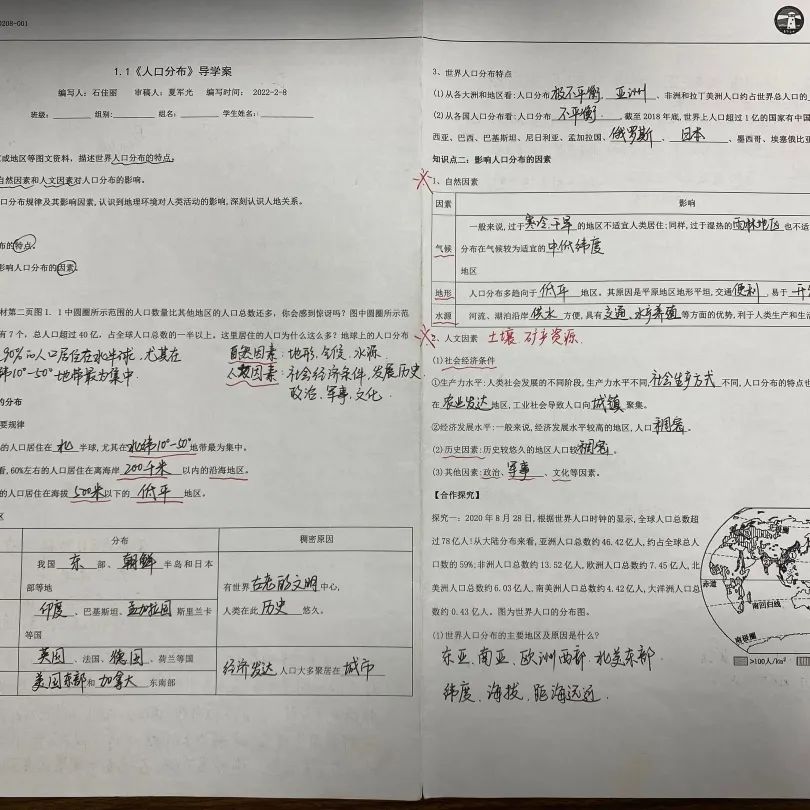 0208-001
1.1《人口分布》导学案
编写人：石佳丽 审稿人：夏军光 编写时间： 2022-2-8
班级：________ 组别:________ 组名：________ 学生姓名：________
区或地区等图文资料，描述世界人口分布的特点。
自然因素和人文因素对人口分布的影响。
口分布规律及其影响因素，认识到地理环境对人类活动的影响，深刻认识人地关系。
布的特点。
影响人口分布的因素。
材第二页图 1.1 中圆圈所示范围的人口数量比其他地区的人口总数还多，你会感到惊讶吗？图中圆圈所示范
有 7 个，总人口超过 40 亿，占全球人口总数的一半以上。这里居住的人口为什么这么多？地球上的人口分布
90%的人口居住在北半球，尤其在
纬10°-50°地带最为集中.
自然因素：地形、气候、水源.
人文因素：社会经济条件，发展历史
政治、军事、文化.
的分布
要规律
的人口居住在 北 半球，尤其在北纬10°-50°地带最为集中。
看，60%左右的人口居住在离海岸 200千米 以内的沿海地区。
的人口居住在海拔 500米以下的 低平 地区。
区
分布 稠密原因
我国 东 部、 朝鲜 半岛和日本
部等地
印度 、巴基斯坦、孟加拉国 斯里兰卡
等国
有世界古老的文明中心，
人类在此 历史 悠久。
英国 、法国、德国 、荷兰等国
美国东部和加拿大 东南部
经济发达 人口大多聚居在 城市
3、世界人口分布特点
(1)从各大洲和地区看：人口分布极不平衡. 亚洲 、非洲和拉丁美洲人口约占世界总人口的
(2)从各国人口分布看：人口分布 不平衡. 。截至 2018 年底，世界上人口超过 1 亿的国家有中国
西亚、巴西、巴基斯坦、尼日利亚、孟加拉国、俄罗斯 、 日本 、墨西哥、埃塞俄比亚
知识点二：影响人口分布的因素
1、自然因素
因素 影响
气候
一般来说，过于寒冷、干旱 的地区不适宜人类居住；同样，过于湿热的雨林地区 也不适
分布在气候较为适宜的 中低纬度
地区
地形 人口分布多趋向于 低平 地区。其原因是平原地区地形平坦，交通便利 ，易于 开
水源 河流、湖泊沿岸 供水 方便，具有交通、水产养殖等方面的优势，利于人类生产和生活
2、人文因素 土壤 矿产资源.
(1)社会经济条件
①生产力水平：人类社会发展的不同阶段，生产力水平不同，社会生产方式 不同，人口分布的特点也
在 农业发达 地区，工业社会导致人口向 城镇 聚集。
②经济发展水平：一般来说，经济发展水平较高的地区，人口 稠密 。
(2)历史因素：历史较悠久的地区人口较稠密 。
(3)其他因素：政治、军事 、文化等因素。
【合作探究】
探究一：2020 年 8 月 28 日，根据世界人口时钟的显示，全球人口总数超
过78亿人！从大陆分布来看，亚洲人口总数约 46.42 亿人，约占全球总人
口数的 59%；非洲人口总数约 13.52 亿人，欧洲人口总数约 7.45 亿人，北
美洲人口总数约 6.03 亿人，南美洲人口总数约 4.42 亿人，大洋洲人口总
数约 0.43 亿人。图为世界人口的分布图。
赤道
南回归线
南极圈
>100人/km²
(1)世界人口分布的主要地区及原因是什么？
东亚、南亚、欧洲西部、北美东部.
纬度、海拔、距海远近.